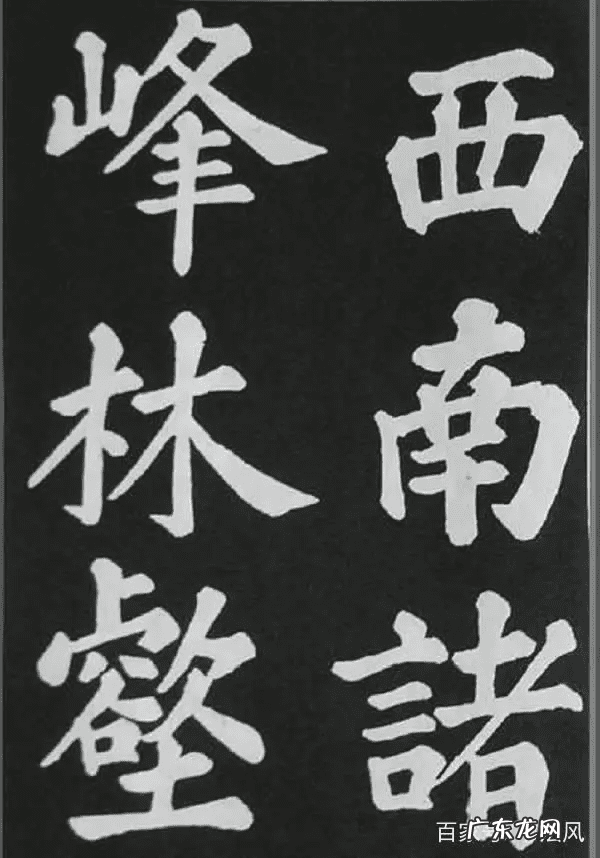 西南諸
峰林壑
广东龙网